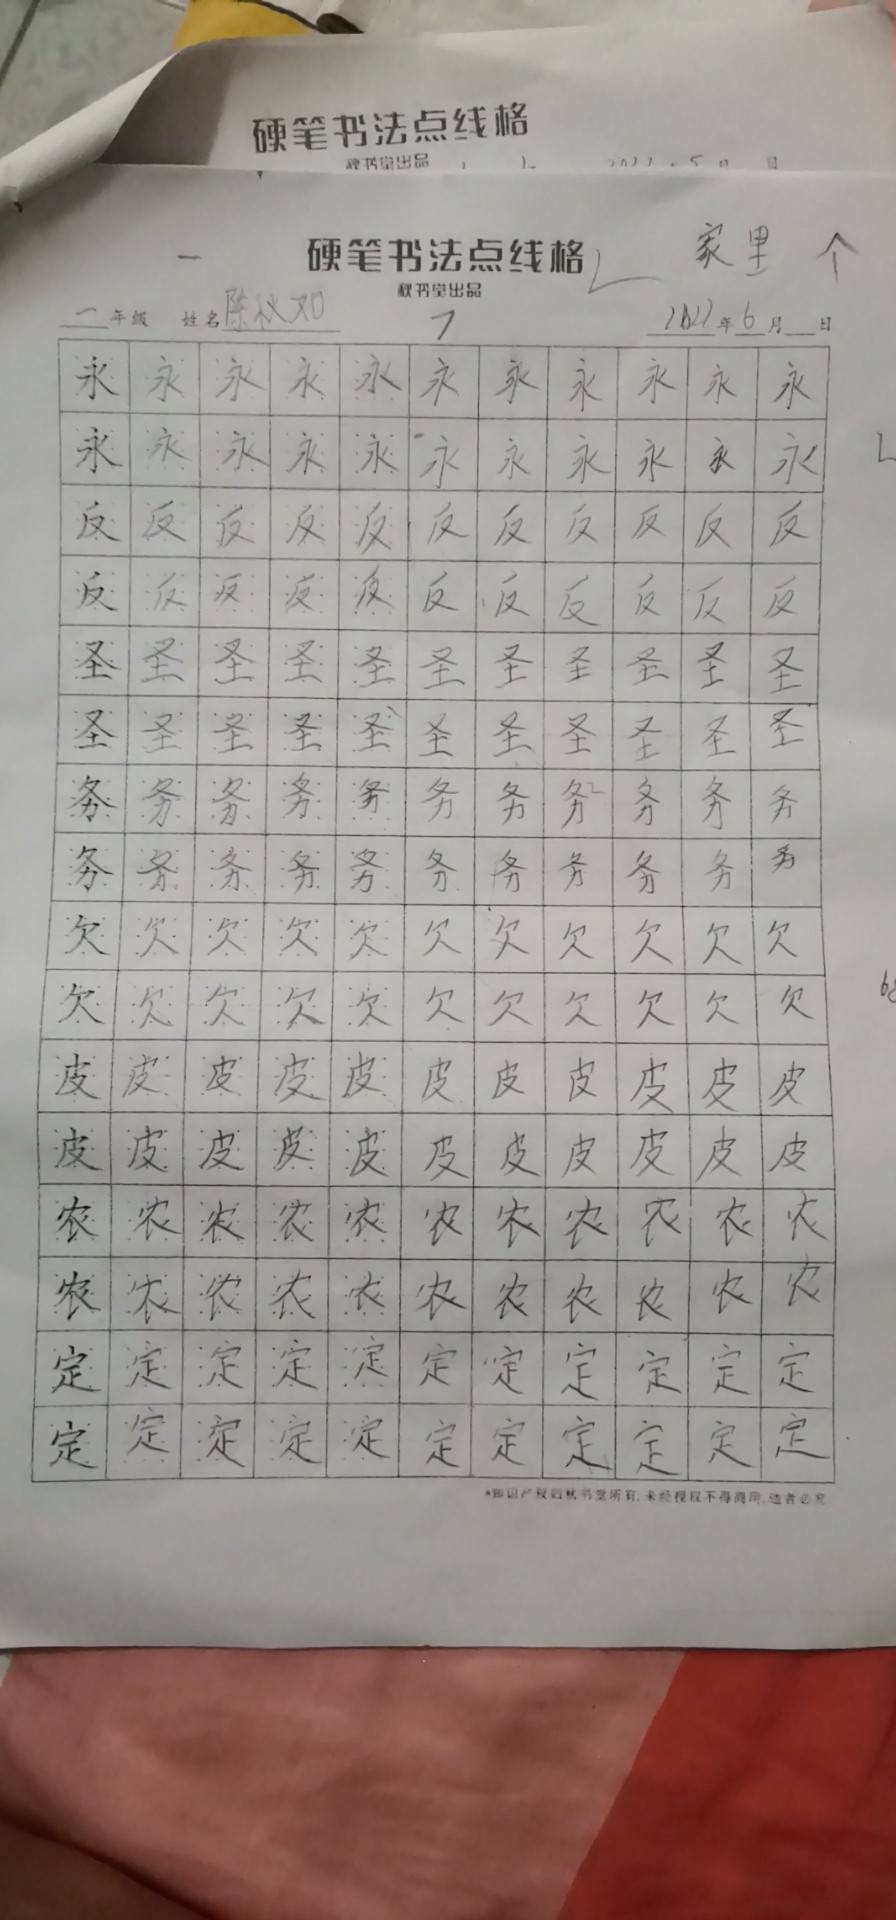 硬笔书法点线格
秋书堂出品 2022年5月 日
一 硬笔书法点线格 家里 个
秋书堂出品
一年级 姓名 陈秋 2022年6月 日
永永永永永永永永永永永
永永永永永永永永永永永
反反反反反反反反反反反
反反反反反反反反反反反
圣圣圣圣圣圣圣圣圣圣圣
圣圣圣圣圣圣圣圣圣圣圣
务务务务务务务务务务务
务务务务务务务务务务务
欠欠欠欠欠欠欠欠欠欠欠
欠欠欠欠欠欠欠欠欠欠欠
皮皮皮皮皮皮皮皮皮皮皮
皮皮皮皮皮皮皮皮皮皮皮
农农农农农农农农农农农
农农农农农农农农农农农
定定定定定定定定定定定
定定定定定定定定定定定
*知识产权归秋书堂所有，未经授权不得商用，违者必究